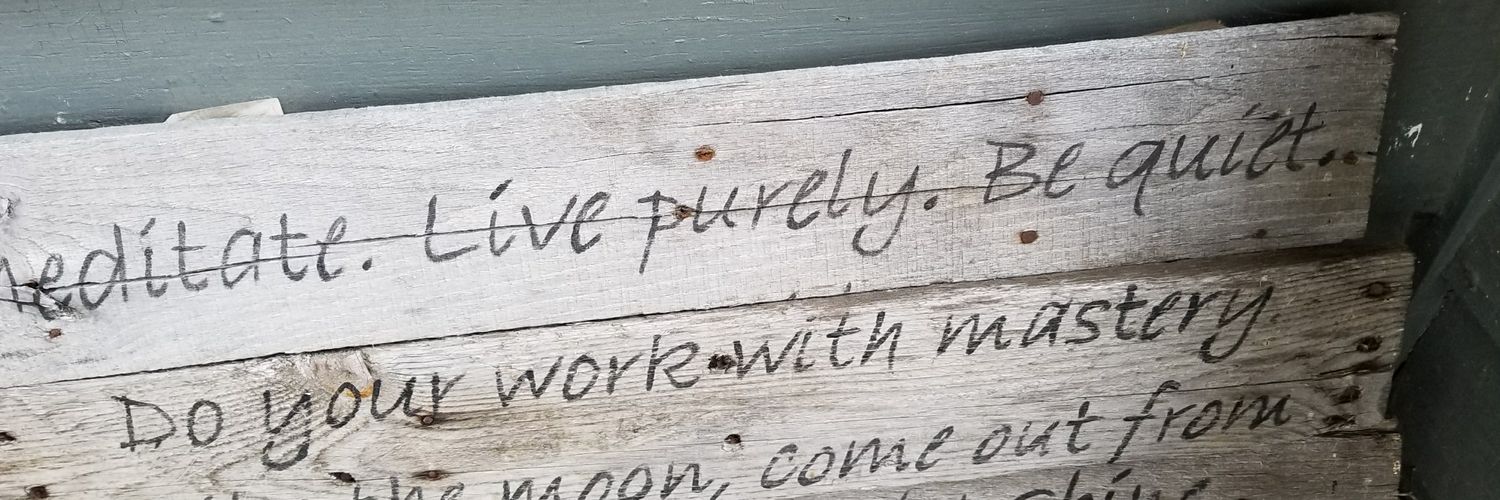 meditate. Live purely. Be quiet.
Do your work with mastery.
the moon, come out from
shine